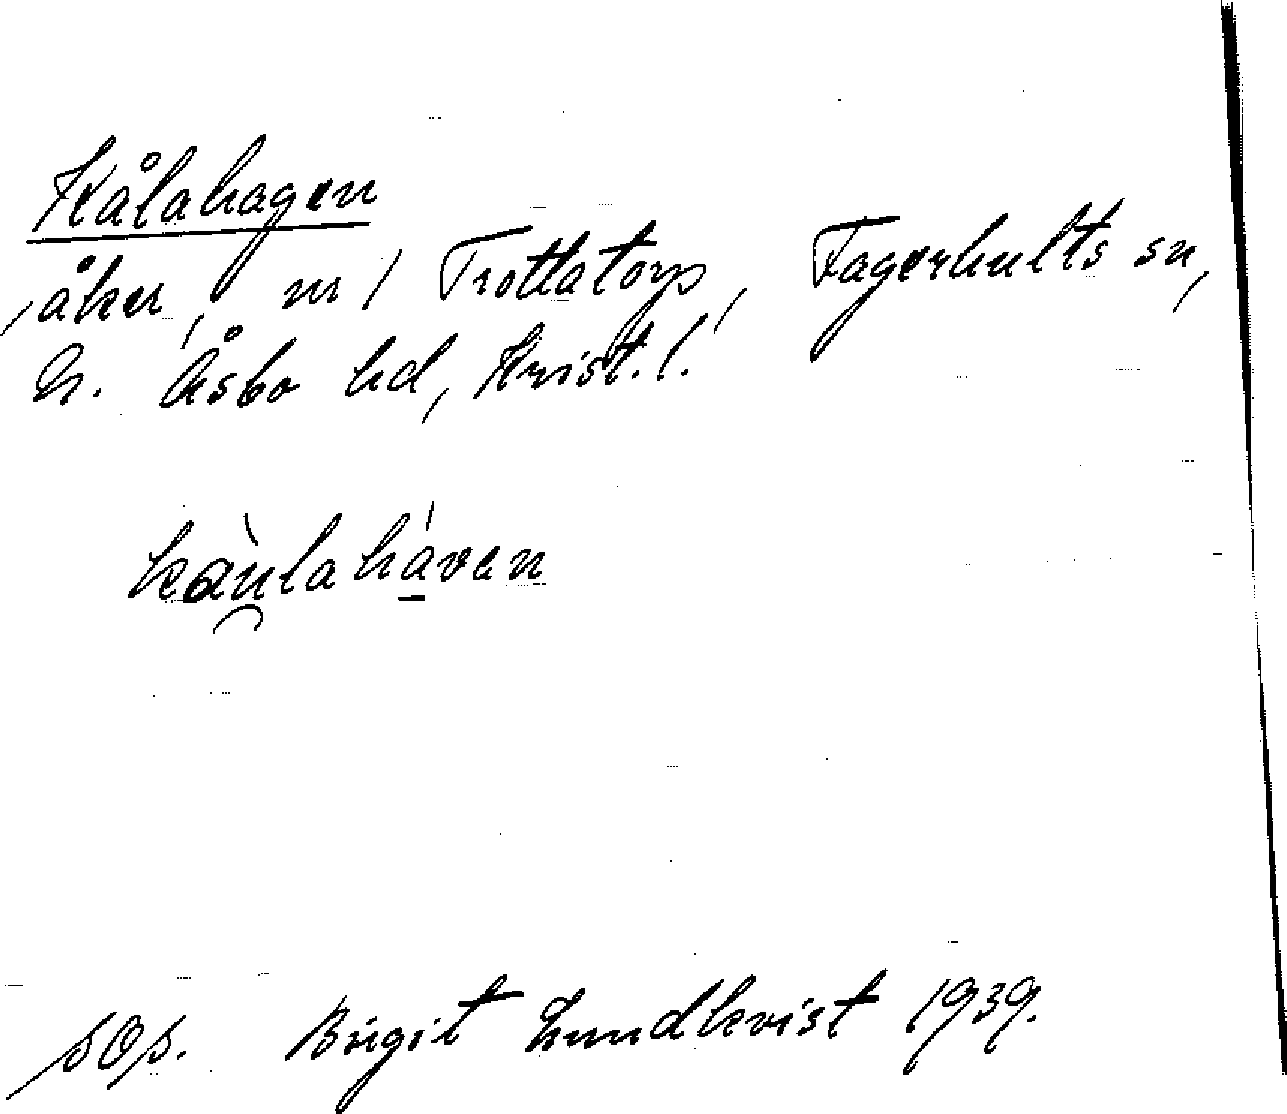 Kålahagen
åker, nr 1 Trottatorp, Fagerhults sn,
N. Åsbo hd, Krist. l.
kàu̯laháven
Birgit Lundkvist 1939.